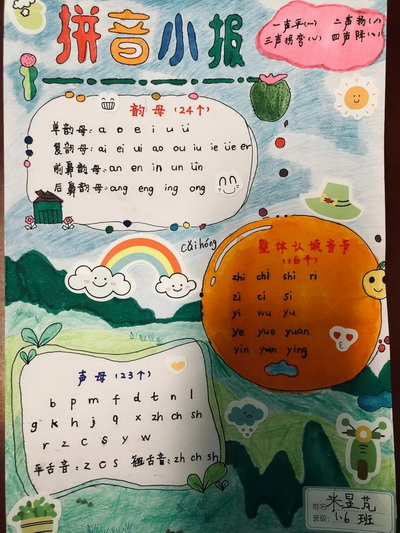 拼音小报
一声平(一) 二声扬(ˊ)
三声拐弯(ˇ) 四声降(ˋ)
韵母(24个)
单韵母:a o e i u ü
复韵母:ai ei ui ao ou iu ie üe er
前鼻韵母:an en in un ün
后鼻韵母:ang eng ing ong
cǎi hóng
整体认读音节
(16个)
zhi chi shi ri
zi ci si
yi wu yu
ye yue yuan
yin yun ying
声母(23个)
b p m f d t n l
g k h j q x zh ch sh
r z c s y w
平舌音:z c s 翘舌音:zh ch sh
姓名: 米昱
班级: 1.6 班